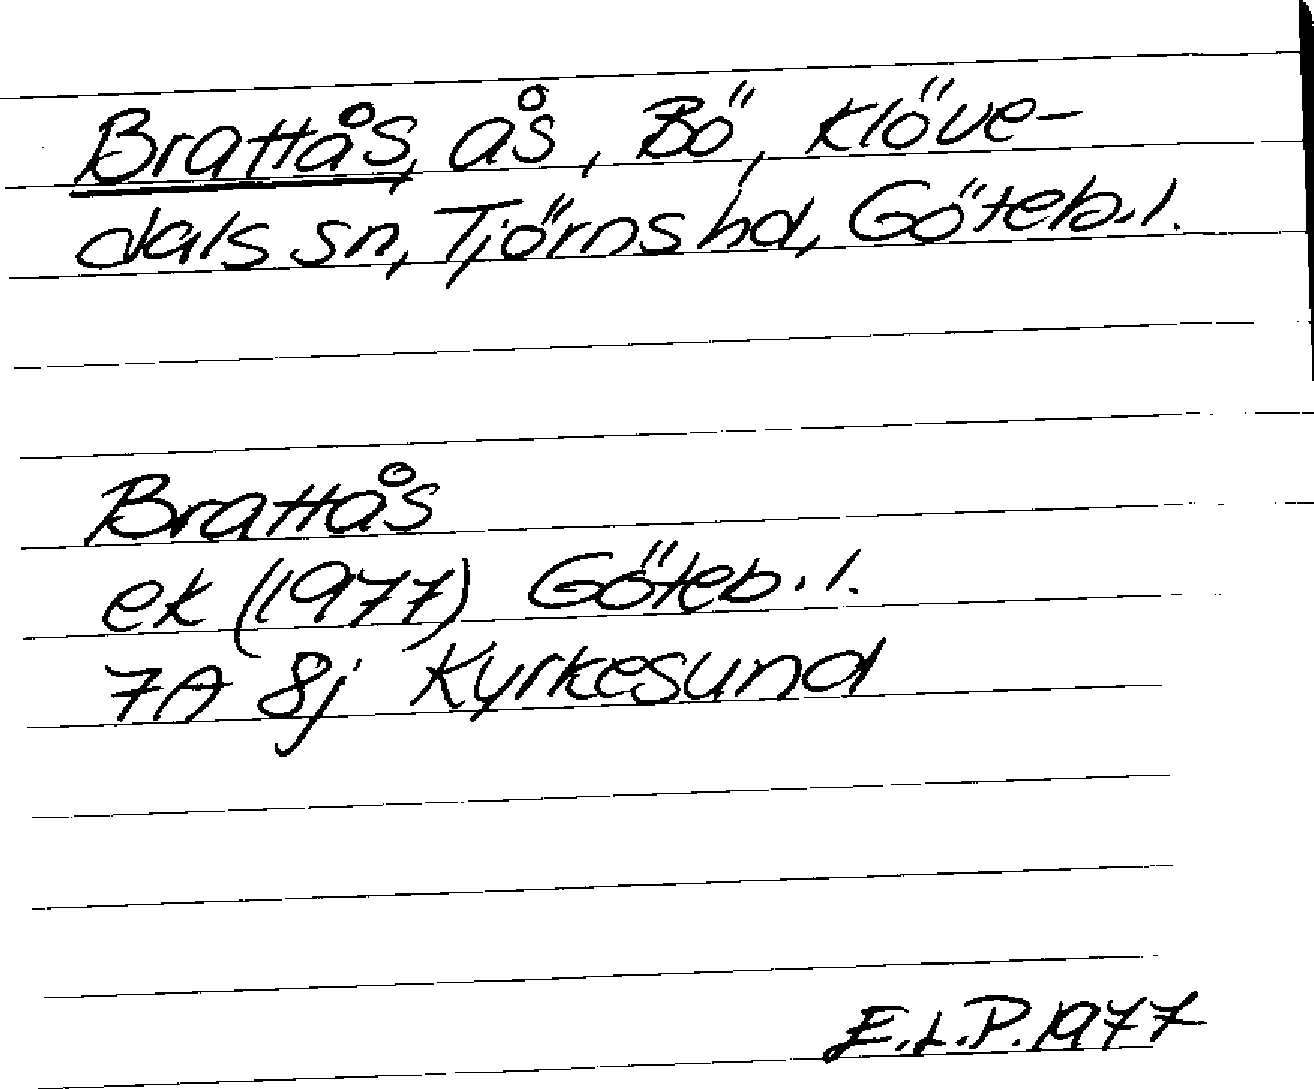 Brattås, ås, Bö, Klöve-
dals sn, Tjörns hd, Göteb.l.
Brattås
ek (1977) Göteb.l.
7A 8j Kyrkesund
E.L.P. 1977